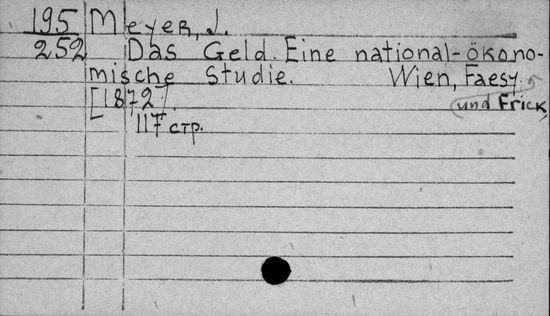 195 Meyer, J.
252 Das Geld. Eine national-ökono-
mische Studie. Wien, Faesy
[1872]. und Frick,
117 стр.